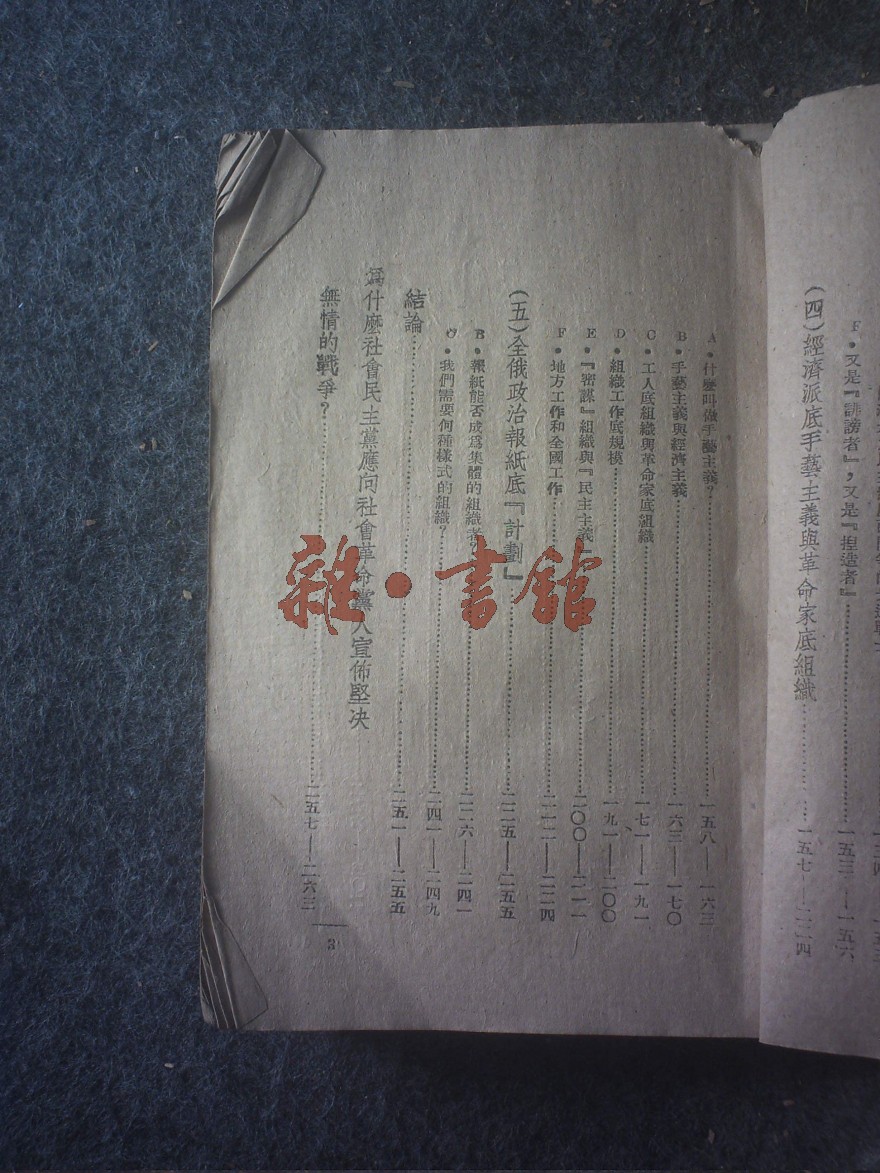 F・又是『誹謗者』，又是『捏造者』……一五三—一五六
(四)經濟派底手藝主義與革命家底組織……一五七—二二四
A・什麼叫做手藝主義？……一五八—一六三
B・手藝主義與經濟主義……一六三—一七〇
C・工人底組織與革命家底組織……一七一—一九一
D・組織工作底規模……一九一—二〇〇
E・『密謀』組織與『民主主義』……二〇〇—二一一
F・地方工作和全國工作……二一二—二二四
(五)全俄政治報紙底『計劃』……二二五—二五五
B・報紙能否成爲集體的組織者？……二二六—二四一
C・我們需要何種樣式的組織？……二四一—二四九
結論……二五一—二五五
爲什麼社會民主黨應向社會革命黨人宣佈堅决
無情的戰爭？……二五七—二六三
3
雜・書館